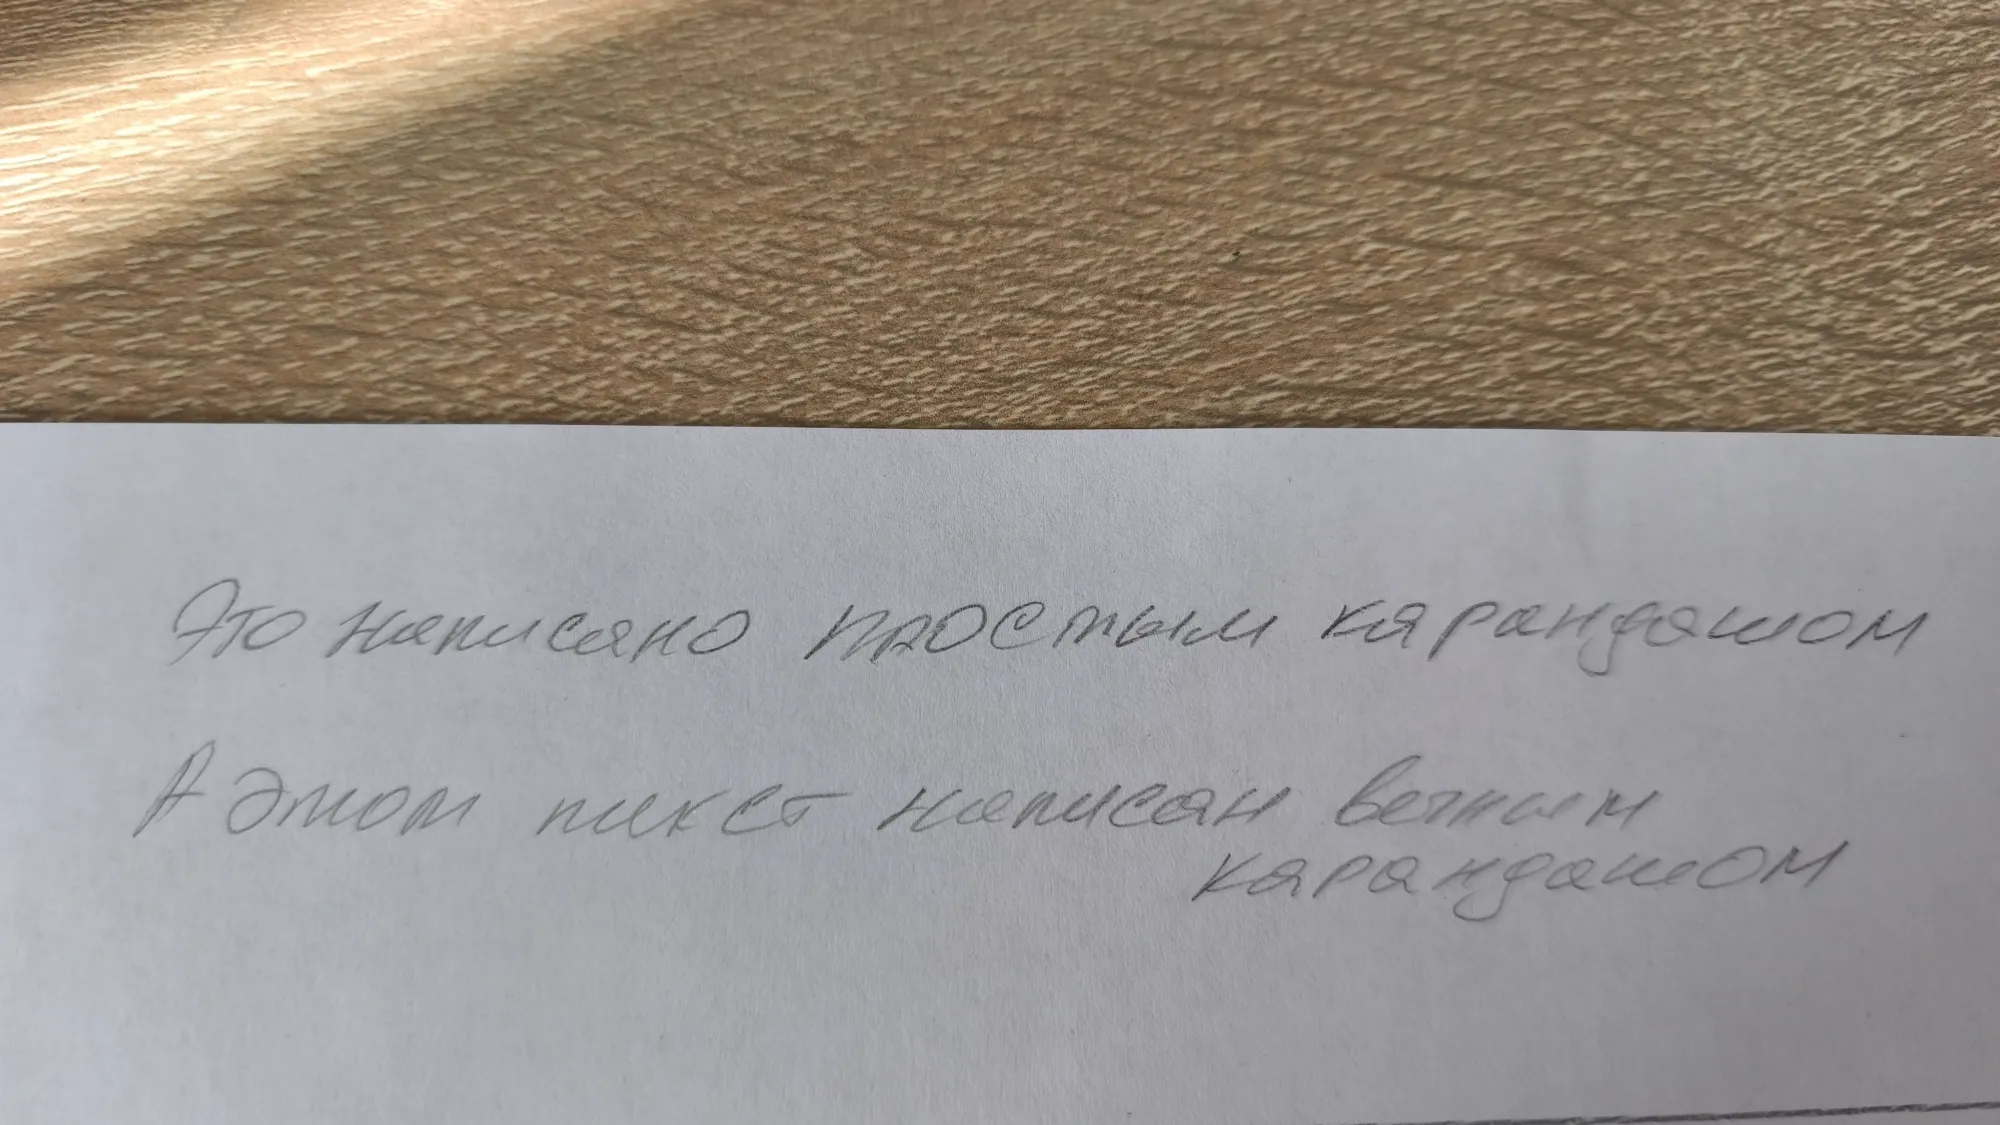 Это написано простым карандашом
А этот текст написан вечным
карандашом